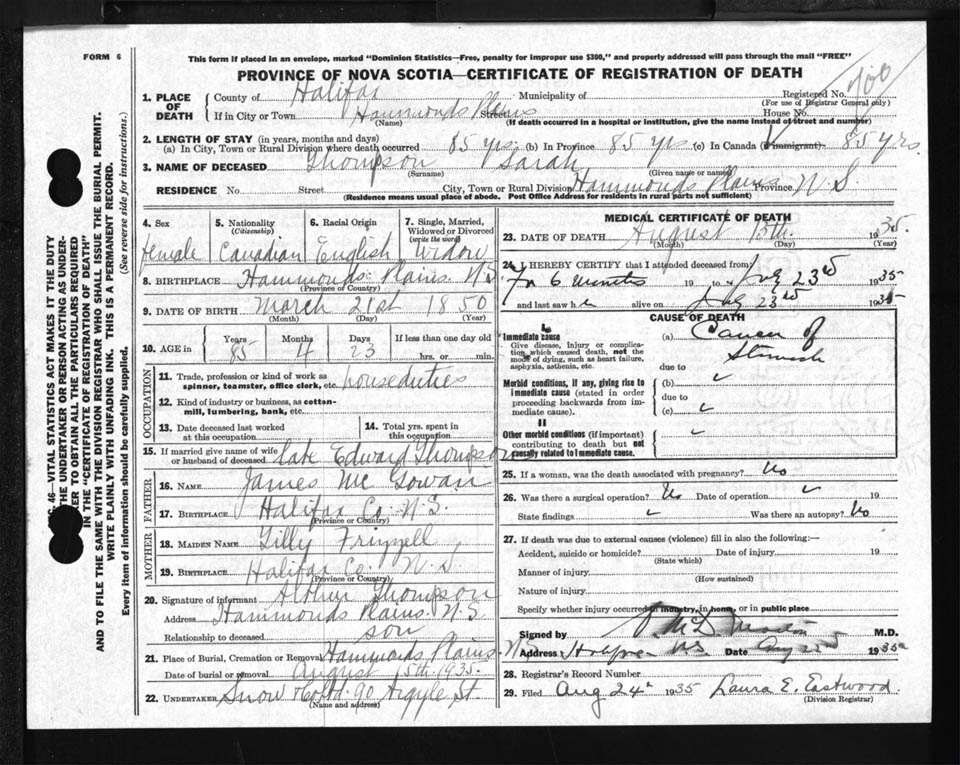 FORM 6
This form if placed in an envelope, marked "Dominion Statistics—Free, penalty for improper use $300," and properly addressed will pass through the mail "FREE"
PROVINCE OF NOVA SCOTIA—CERTIFICATE OF REGISTRATION OF DEATH
1. PLACE OF DEATH
County of Halifax Municipality of Registered No.
(For use of Registrar General only)
If in City or Town Hammonds Plains Street House No.
(Name) (If death occurred in a hospital or institution, give the name instead of street and number)
2. LENGTH OF STAY (in years, months and days)
(a) In City, Town or Rural Division where death occurred 85 yrs. (b) In Province 85 yrs. (c) In Canada (if immigrant) 85 yrs.
3. NAME OF DECEASED Thompson Sarah
(Surname) (Given name or names)
RESIDENCE No. Street City, Town or Rural Division Hammonds Plains Province N.S.
(Residence means usual place of abode. Post Office Address for residents in rural parts not sufficient)
4. Sex female
5. Nationality (Citizenship) Canadian
6. Racial Origin English
7. Single, Married, Widowed or Divorced (write the word) widow
8. BIRTHPLACE Hammonds Plains N.S.
(Province or Country)
9. DATE OF BIRTH March 21st 1850
(Month) (Day) (Year)
10. AGE in Years 85 Months 4 Days 23 If less than one day old hrs. or min.
OCCUPATION
11. Trade, profession or kind of work as spinner, teamster, office clerk, etc. houseduties
12. Kind of industry or business, as cotton-mill, lumbering, bank, etc.
13. Date deceased last worked at this occupation
14. Total yrs. spent in this occupation
15. If married give name of wife or husband of deceased late Edward Thompson
FATHER
16. NAME James McGowan
17. BIRTHPLACE Halifax Co. N.S.
(Province or Country)
MOTHER
18. MAIDEN NAME Lilly Frizzell
19. BIRTHPLACE Halifax Co. N.S.
(Province or Country)
20. Signature of informant Arthur Thompson
Address Hammonds Plains. N.S.
Relationship to deceased son
21. Place of Burial, Cremation or Removal Hammonds Plains. N.S.
Date of burial or removal August 15th. 1935.
22. UNDERTAKER Snow & Co Ltd. 90 Argyle St.
(Name and address)
MEDICAL CERTIFICATE OF DEATH
23. DATE OF DEATH August 13th. 1935.
(Month) (Day) (Year)
24. I HEREBY CERTIFY that I attended deceased from:
For 6 minutes 19 to Aug 23rd 1935
and last saw h alive on Aug 23rd 1935
CAUSE OF DEATH
I
Immediate cause
Give disease, injury or complication, which caused death, not the mode of dying, such as heart failure, asphyxia, asthenia, etc.
(a) Cancer of Stomach
due to
Morbid conditions, if any, giving rise to immediate cause (stated in order proceeding backwards from immediate cause).
(b)
due to
(c)
II
Other morbid conditions (if important) contributing to death but not causally related to immediate cause.
25. If a woman, was the death associated with pregnancy? No
26. Was there a surgical operation? No Date of operation 19
State findings Was there an autopsy? No
27. If death was due to external causes (violence) fill in also the following:—
Accident, suicide or homicide? Date of injury 19
(State which)
Manner of injury
(How sustained)
Nature of injury
Specify whether injury occurred in industry, in home, or in public place
Signed by M.D.
Address Halifax N.S. Date Aug 1935
28. Registrar's Record Number
29. Filed Aug 24th 1935 Laura E. Eastwood
(Division Registrar)
46—VITAL STATISTICS ACT MAKES IT THE DUTY
THE UNDERTAKER OR PERSON ACTING AS UNDER-
TAKER TO OBTAIN ALL THE PARTICULARS REQUIRED
IN THE "CERTIFICATE OF REGISTRATION OF DEATH"
AND TO FILE THE SAME WITH THE DIVISION REGISTRAR WHO SHALL ISSUE THE BURIAL PERMIT.
WRITE PLAINLY WITH UNFADING INK. THIS IS A PERMANENT RECORD.
Every item of information should be carefully supplied. (See reverse side for instructions.)